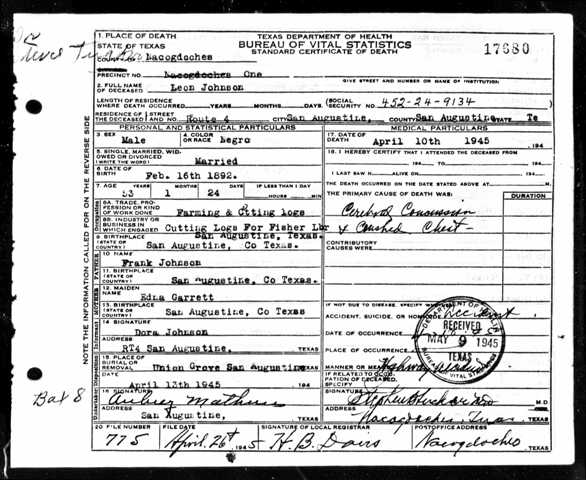 TEXAS DEPARTMENT OF HEALTH
BUREAU OF VITAL STATISTICS
STANDARD CERTIFICATE OF DEATH
17680
1. PLACE OF DEATH
STATE OF TEXAS
COUNTY OF Nacogdoches
PRECINCT NO. Nacogdoches One
GIVE STREET AND NUMBER OR NAME OF INSTITUTION
2. FULL NAME OF DECEASED Leon Johnson
LENGTH OF RESIDENCE WHERE DEATH OCCURRED YEARS MONTHS DAYS
SOCIAL SECURITY NO. 452-24-9134
RESIDENCE OF THE DECEASED STREET AND NO. Route 4 CITY San Augustine, COUNTY San Augustine STATE Te
PERSONAL AND STATISTICAL PARTICULARS
3. SEX Male
4. COLOR OR RACE Negro
5. SINGLE, MARRIED, WIDOWED OR DIVORCED (WRITE THE WORD) Married
6. DATE OF BIRTH Feb. 16th 1892.
7. AGE 53 YEARS 1 MONTHS 24 DAYS IF LESS THAN 1 DAY HOURS MIN
8A. TRADE, PROFESSION OR KIND OF WORK DONE Farming & Ctting logs
8B. INDUSTRY OR BUSINESS IN WHICH ENGAGED Cutting Logs For Fisher Lbr
9. BIRTHPLACE (STATE OR COUNTRY) San Augustine, Texas.
San Augustine, Co Texas.
10. NAME Frank Johnson
11. BIRTHPLACE (STATE OR COUNTRY) San Augustine, Co Texas.
12. MAIDEN NAME Edna Garrett
13. BIRTHPLACE (STATE OR COUNTRY) San Augustine, Co Texas
14. SIGNATURE Dora Johnson
ADDRESS RT4 San Augustine, TEXAS
15. PLACE OF BURIAL OR REMOVAL Union Grove San Augustine TEXAS
DATE April 13th 1945
16. SIGNATURE
ADDRESS San Augustine, TEXAS
MEDICAL PARTICULARS
17. DATE OF DEATH April 10th 1945 194
18. I HEREBY CERTIFY THAT I ATTENDED THE DECEASED FROM
194 TO 194
I LAST SAW H ALIVE ON 194
THE DEATH OCCURRED ON THE DATE STATED ABOVE AT M.
THE PRIMARY CAUSE OF DEATH WAS: DURATION
Cerebral Concussion
& Crushed Chest
CONTRIBUTORY CAUSES WERE:
IF NOT DUE TO DISEASE, SPECIFY
ACCIDENT, SUICIDE, OR HOMICIDE Accident
DATE OF OCCURRENCE
PLACE OF OCCURRENCE
MANNER OR MEANS
IF RELATED TO OCCUPATION OF DECEASED, SPECIFY
SIGNATURE M.D.
ADDRESS Nacogdoches, Texas TEXAS
RECEIVED
MAY 9 1945
TEXAS
VITAL STATISTICS
20 FILE NUMBER 775
FILE DATE April 26th 1945
SIGNATURE OF LOCAL REGISTRAR H. B. Davis
POSTOFFICE ADDRESS Nacogdoches TEXAS
NOTE THE INFORMATION CALLED FOR ON THE REVERSE SIDE
Box 8